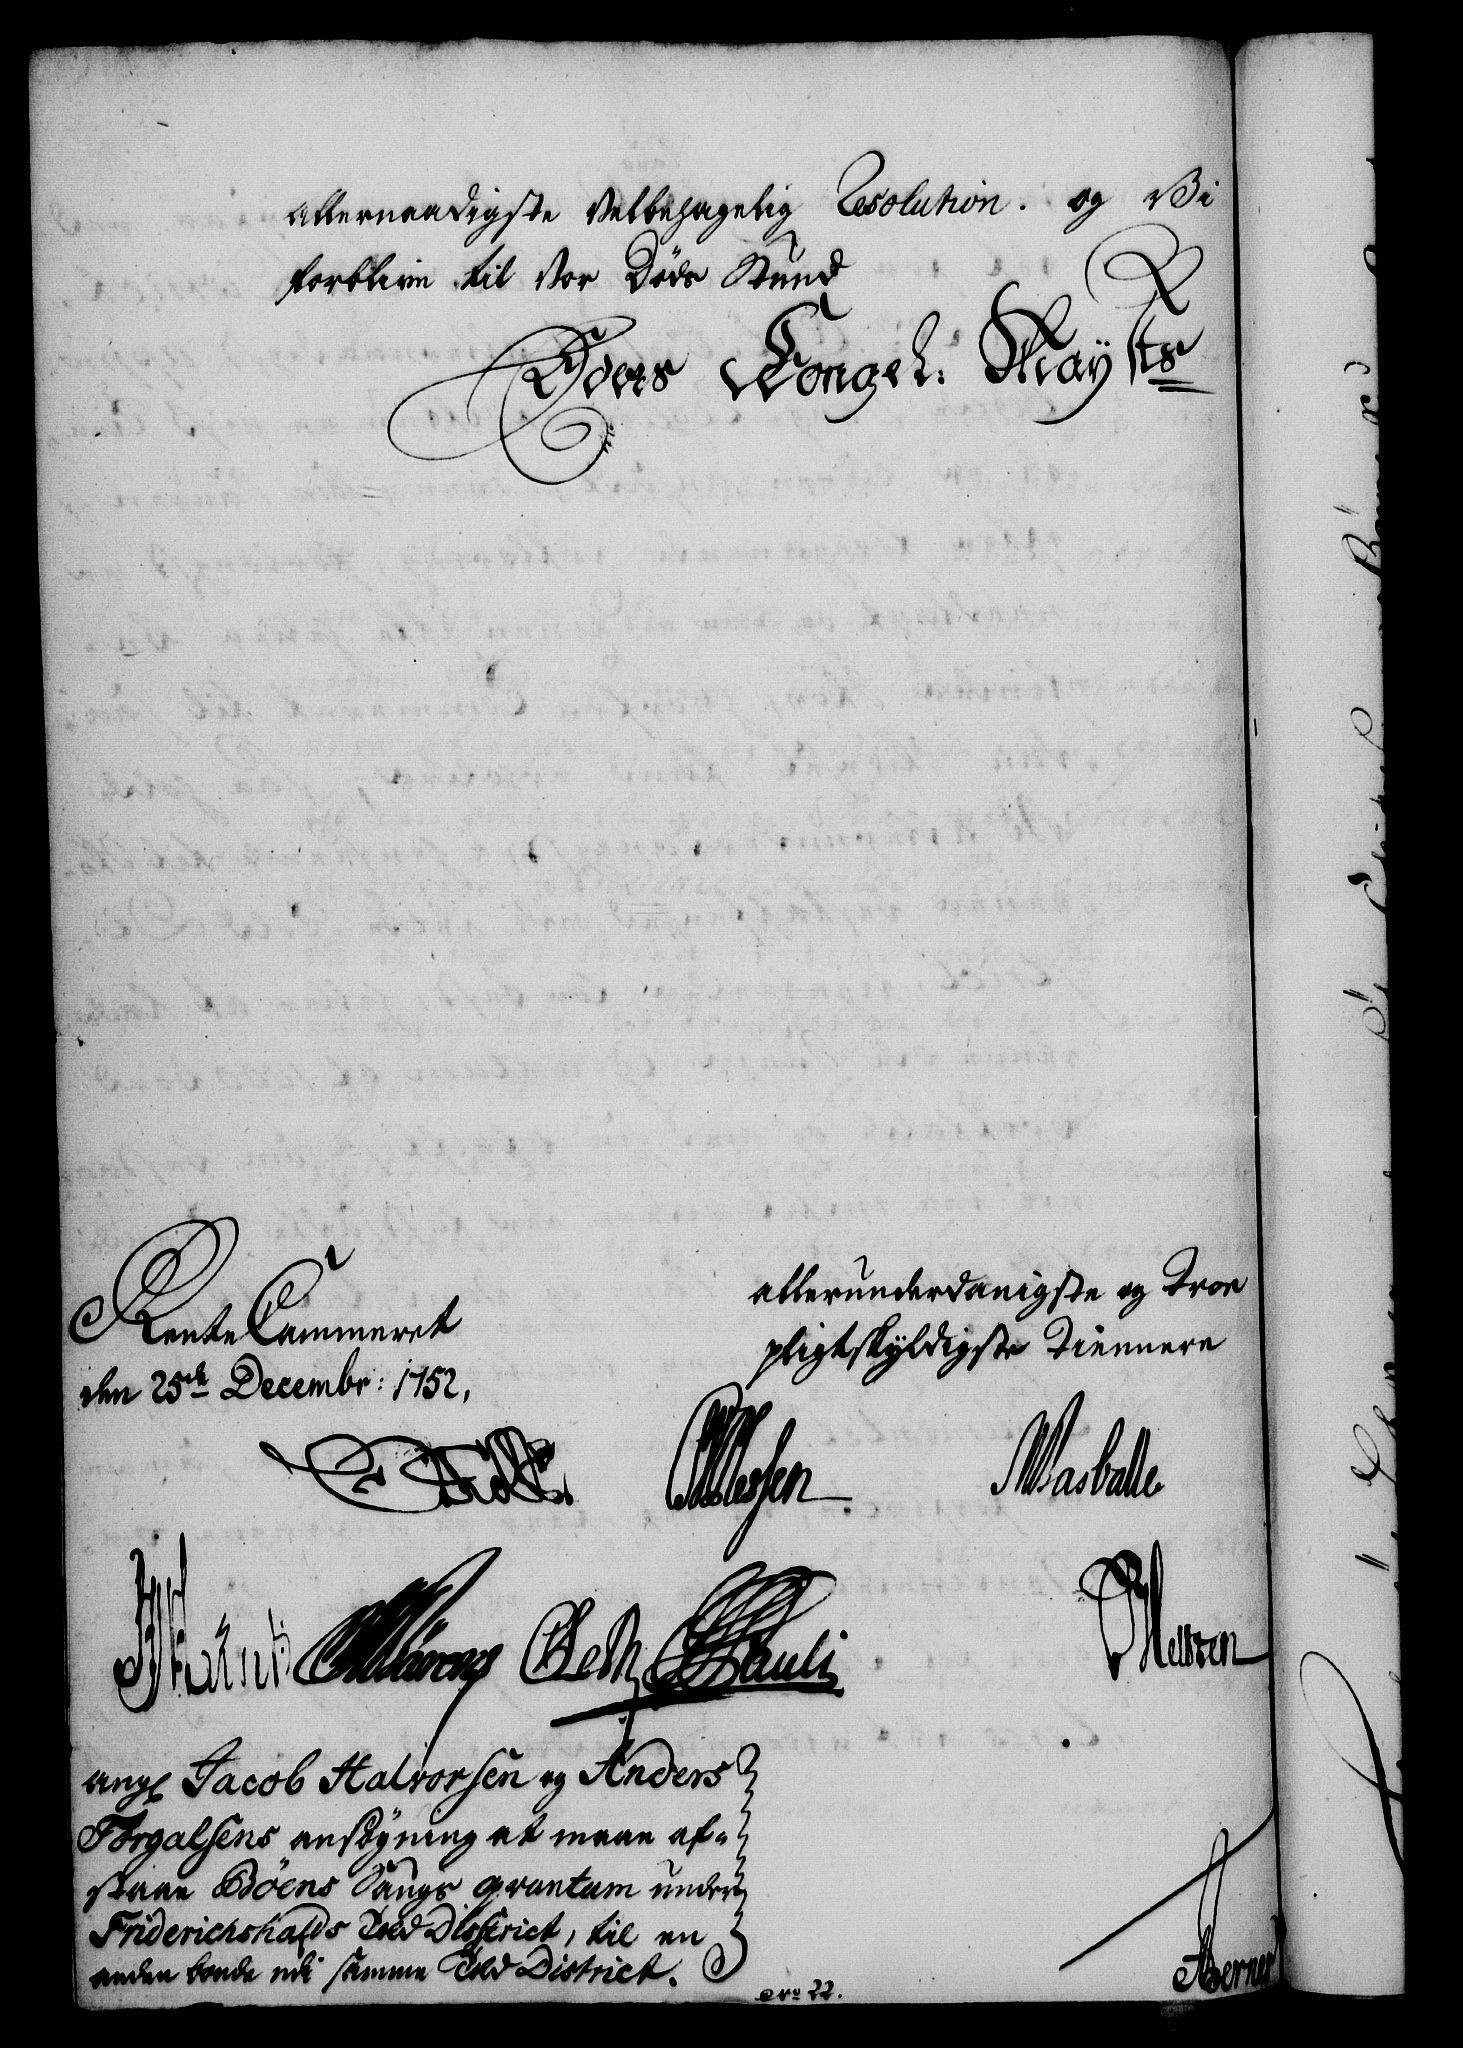 allernaadigste Velbehagelig Resolution. og Vi
forblive til Vor Døds Stund
Eders Kongel: Mayts
Rente Cammeret
den 25de Decembr: 1752,
allerunderdanigste og Troe
pligtskyldigste Tiennere
Wasballe
Pauli
ang Jacob Halvorsen og Anders
Torgalsens ansøgning at maae af-
staae Böens Saugs qvantum under
Friderichshalds Told District, til en
anden bonde udi samme Told District.
No 22.
Berner